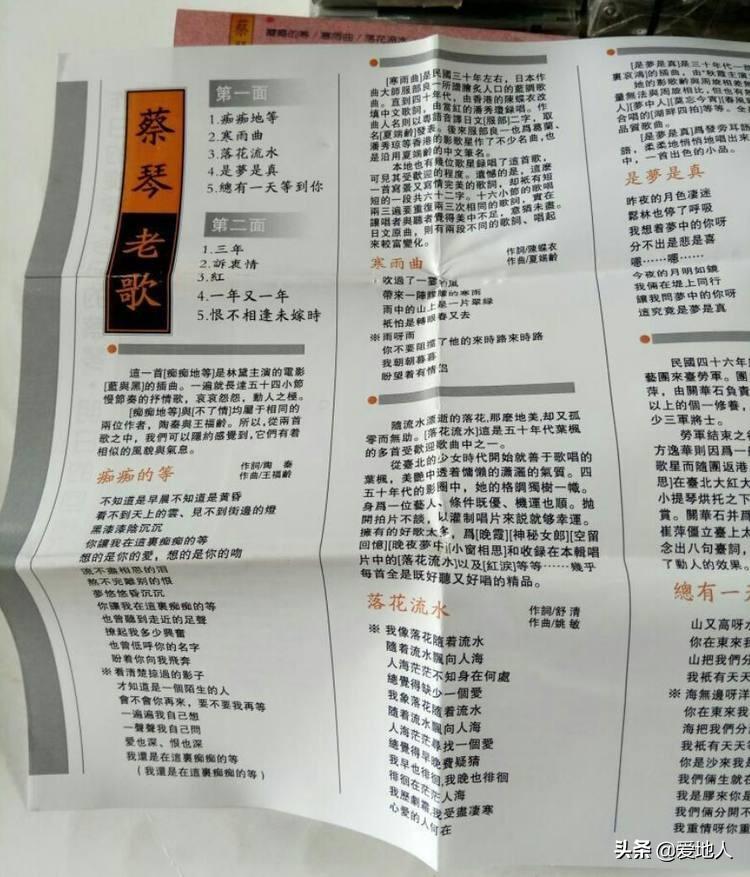 癡癡的等／寒雨曲／落花流水
蔡琴
老歌
第一面
1.痴痴地等
2.寒雨曲
3.落花流水
4.是夢是真
5.總有一天等到你
第二面
1.三年
2.訴衷情
3.紅
4.一年又一年
5.恨不相逢未嫁時
這一首[痴痴地等]是林黛主演的電影
[藍與黑]的插曲。一遍就長達五十四小節
慢節奏的抒情歌，哀哀怨怨，動人之極。
[痴痴地等]與[不了情]均屬于相同的
兩位作者，陶秦與王福齡。所以，從兩首
歌之中，我們可以隱約感覺到，它們有着
相似的風貌與氣息。
痴痴的等
作詞/陶 秦
作曲/王福齡
不知道是早晨不知道是黃昏
看不到天上的雲、見不到街邊的燈
黑漆漆陰沉沉
你讓我在這裏痴痴的等
想的是你的愛，想的是你的吻
流不盡相思的淚
熬不完離別的恨
夢悠悠昏沉沉
你讓我在這裏痴痴的等
也曾聽到走近的足聲
撩起我多少興奮
也曾低呼你的名字
盼着你向我飛奔
※看清楚掠過的影子
才知道是一個陌生的人
會不會你再來，要不要我再等
一遍遍我自己想
一聲聲我自己問
愛也深、恨也深
我還是在這裏痴痴的等
(我還是在這裏痴痴的等)
[寒雨曲]是民國三十年左右，日本作
曲大師服部良一所譜膾炙人口的藍調歌
曲。直到四十年代，由香港的陳蝶衣改
填中文歌詞，由當紅的潘秀瓊錄唱。作
曲人名則以粵語音譯日文[服部]二字，作
名[夏端齡]發表。後來服部良一也爲葛蘭、
潘秀瓊等香港的影歌星作了不少名曲，也
是沿用夏端齡的中文筆名。
本地也有幾位歌星錄唱了這首歌，
可見其受歡迎的程度。遺憾的是，這麽
一首寫景又寫情完美的歌詞，却祇有短
短的一段共六十二字。十六小節的歌唱
兩三遍要重復兩三次相同的歌詞，實在
讓唱者與聽者覺得美中不足，意猶未盡。
日文原曲，則有兩段不同的歌詞、唱起
來較富變化。
作詞/陳蝶衣
作曲/夏端齡
寒雨曲
吹過了一霎的風
帶來一陣朦朧的寒雨
雨中的山上是一片翠綠
祇怕是轉眼春又去
※雨呀雨
你不要阻擋了他的來時路來時路
我朝朝暮暮
盼望着有情侶
隨流水漂逝的落花,那麽地美,却又孤
零而無助。[落花流水]這是五十年代葉楓
的多首受歡迎歌曲中之一。
從臺北的少女時代開始就善于歌唱的
葉楓，美艷中透着慵懶的瀟灑的氣質。四
五十年代的影圈中，她的格鋼獨樹一幟。
身爲一位藝人、條件既優、機運也順。拋
開拍片不談，以灌制唱片來説就够幸運。
擁有的好歌太多，爲[晚霞][神秘女郎][空留
回憶][晚夜夢中][小窗相思]和收録在本輯唱
片中的[落花流水]以及[紅淚]等等……幾乎
每首全是既好聽又好唱的精品。
落花流水
作詞/舒 清
作曲/姚 敏
※ 我像落花隨着流水
隨着流水飄向人海
人海茫茫不知身在何處
總覺得缺少一個愛
我象落花隨着流水
隨着流水飄向人海
人海茫茫尋找一個愛
總覺得早晚費疑猜
我早也徘徊,我晚也徘徊
徘徊在茫茫人海
我歷劇霜,我受盡凄寒
心愛的人何在
[是夢是真]是三十年代一部
裏哀鴻]的插曲，由"秋霞主演
她的影歌齡與周旋相差無
量無法與周旋相比，但也有無
人][夢中人][莫忘今宵][春風
合唱的[湖畔四拍]等等。全
品質歌曲。
[是夢是真]爲發旁耳語
語，柔柔地悄悄地唱出來
中，一首出色的小品。
是夢是真
昨夜的月色凄迷
鬆林也停了呼吸
我想着夢中的你呀
分不出是悲是喜
嗯……嗯……
今夜的月明如鏡
我倆在堤上同行
讓我問夢中的你呀
這究竟是夢是真
民國四十六年
藝團來臺勞軍。團
萍，由關華石負責
以上的個一修養，
少三軍將士。
勞軍結束之後
方逸華則因爲一
歌星而隨團返港
思]在臺北大紅大
小提琴烘托之下
賞。關華石并爲
崔萍僵立臺上太
念出八句臺詞，
了動人的效果。
總有一天
山又高呀水
你在東來我
山把我們分
我祇有天天
※ 海無邊呀洋
你在東來我
海把我們分
我祇有天天等
你是沙來我是
我們倆生就在
我是膠來你是
我們倆分開不
我重情呀你重
头条 @爱地人